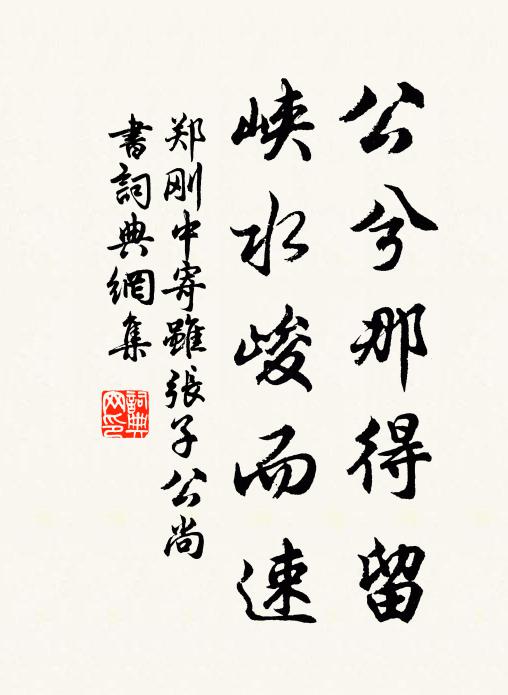 公兮那得留
峡水峻而速
郑刚中寄虽張子公尚
書詞典網集
詞典网印